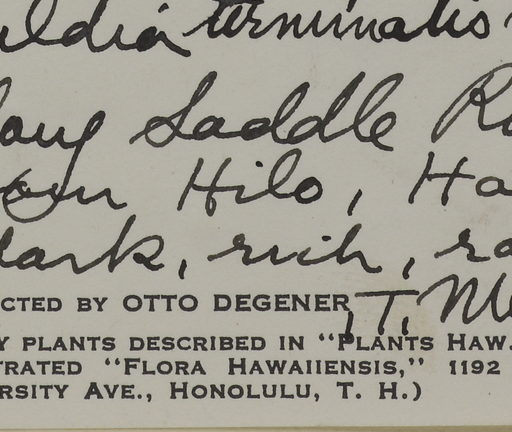 terminalis
Saddle
Hilo, Ha
dark, rich, ra
CTED BY OTTO DEGENER, T. Me
Y PLANTS DESCRIBED IN "PLANTS HAW.
TRATED "FLORA HAWAIIENSIS," 1192
RSITY AVE., HONOLULU, T. H.)